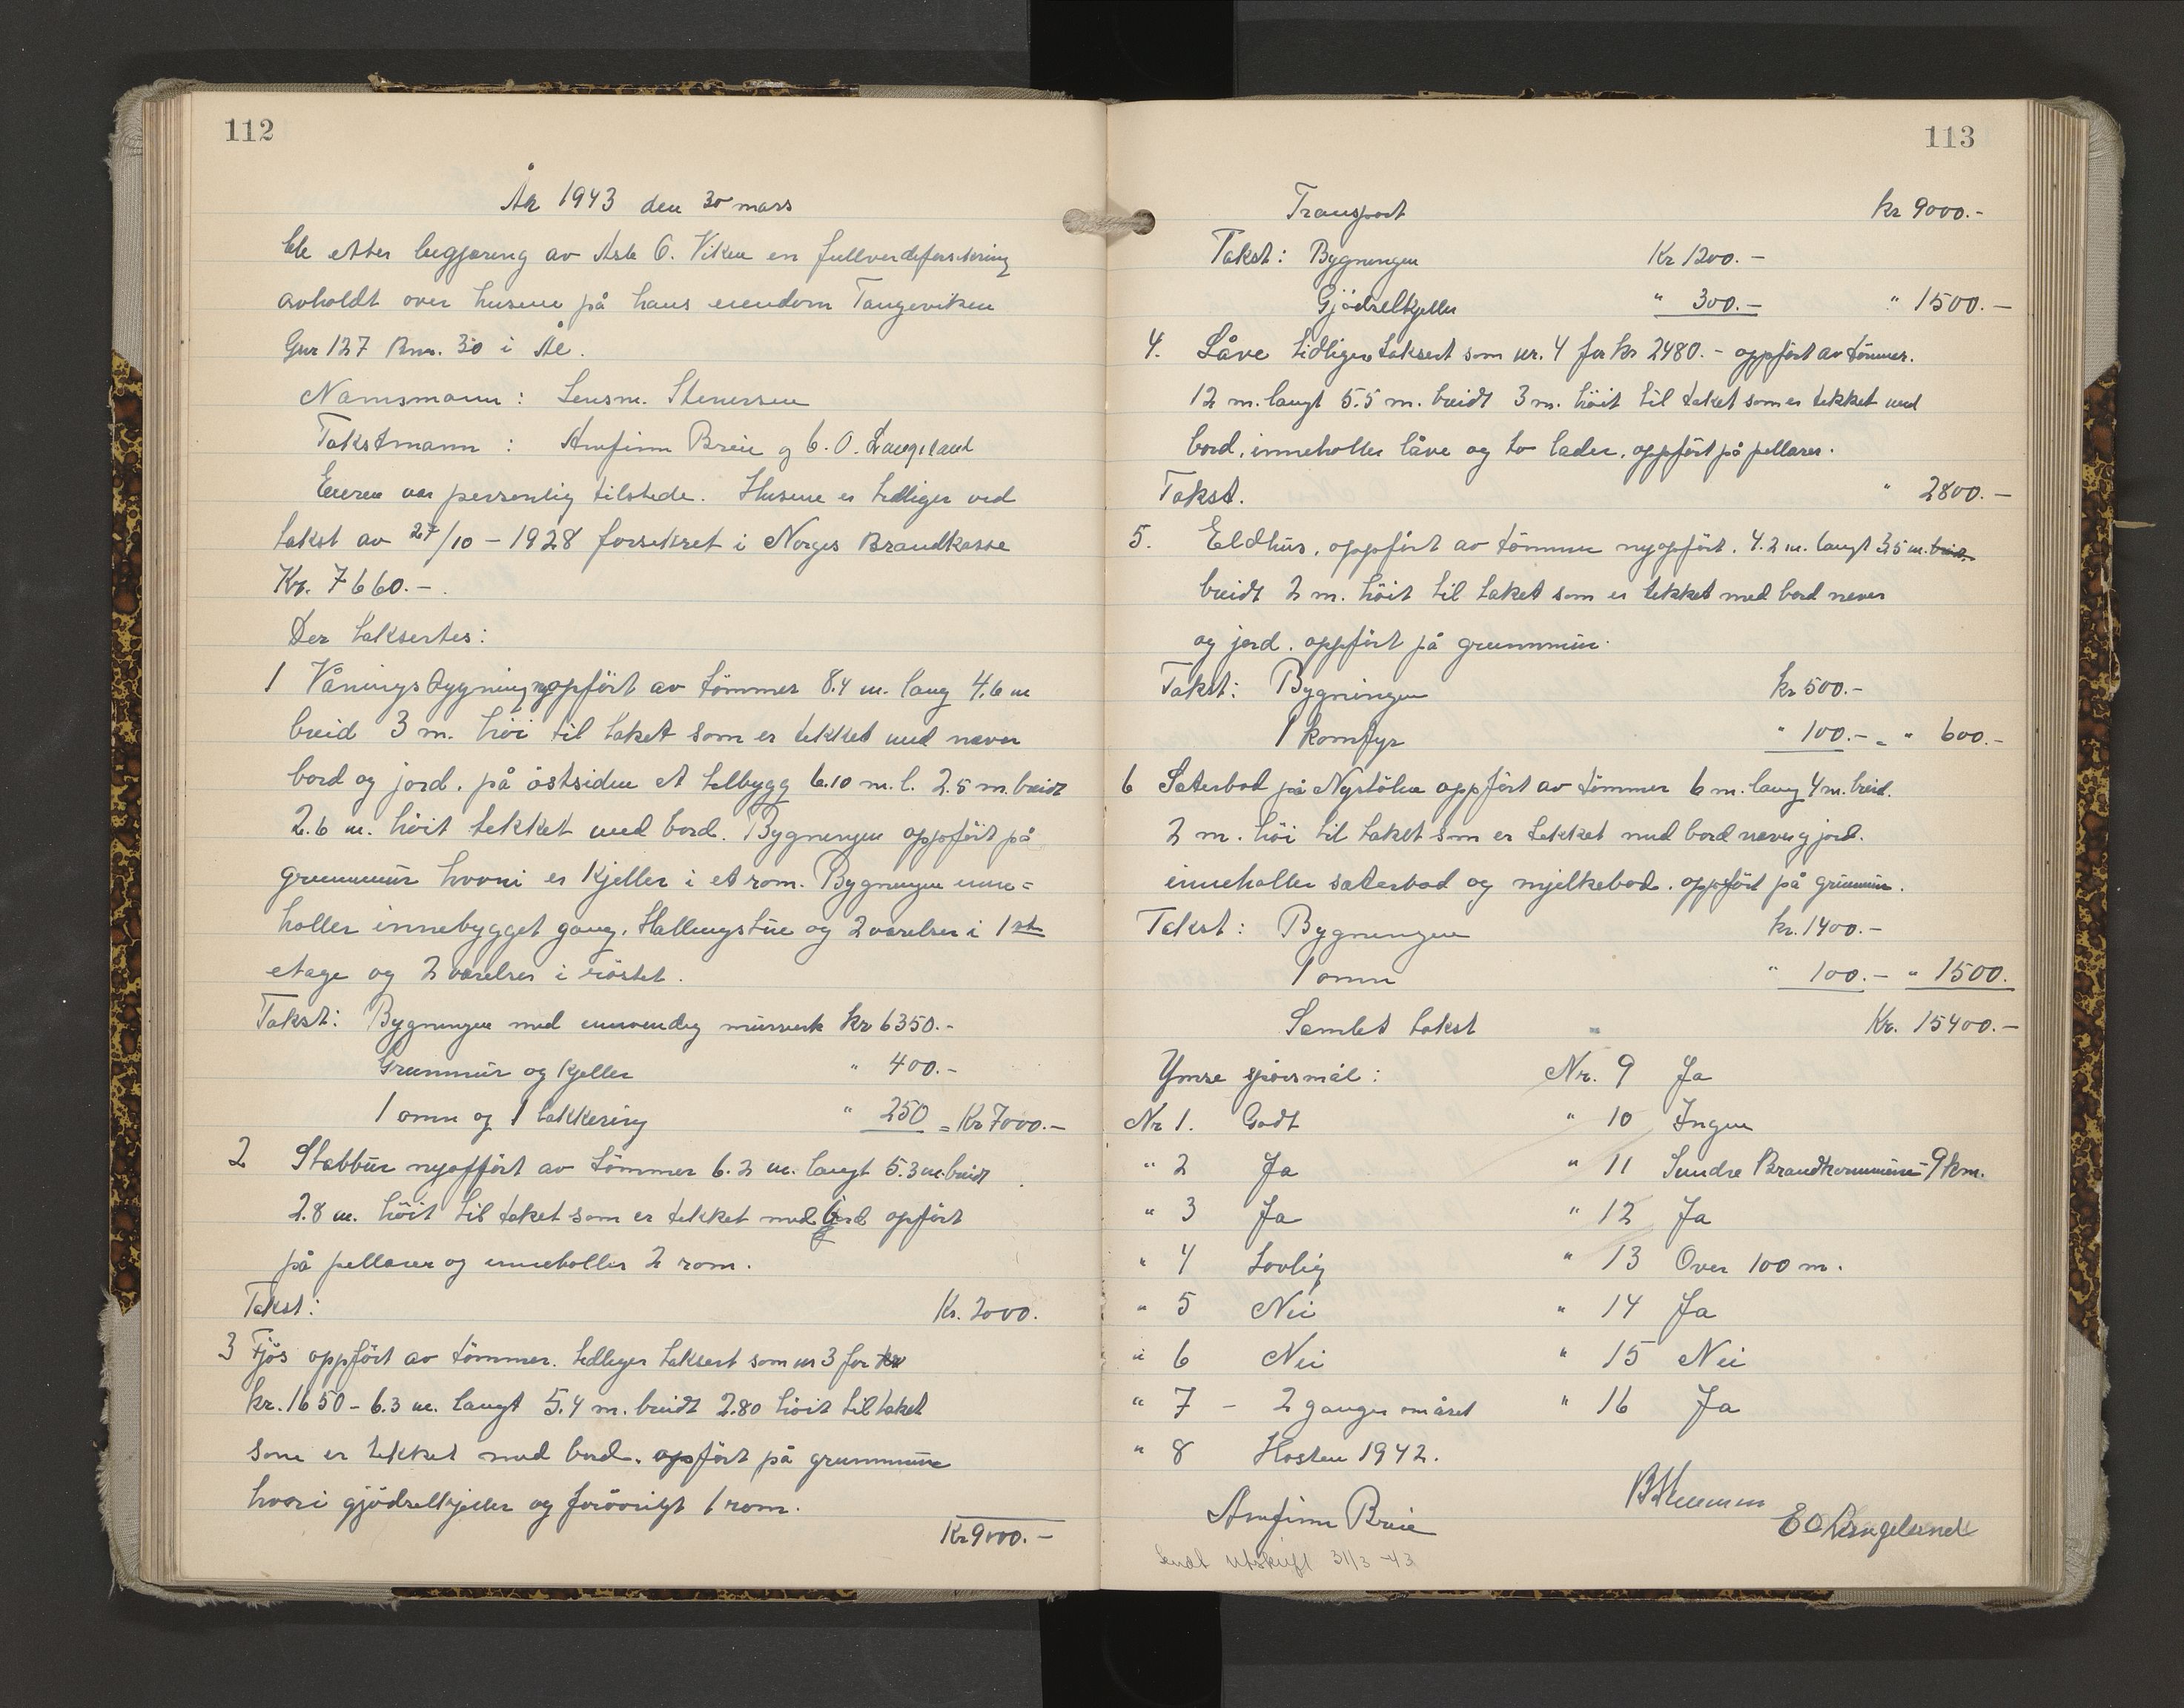 112
År 1943 den 30 mars
Ble etter begjæring av Asle O. Viken en fullverdiforsikring
avholdt over husene på hans eiendom Tangeviken
Gnr 127 Bnr. 30 i Ål.
Namsmann: Lensm. Stenersen
Takstmann: Arnfinn Breie og E. O. Langeland
Eieren var personlig tilstede. Husene er tidliger ved
takst av 27/10 - 1928 forsikret i Norges Brandkasse
Kr. 7660.-
Der taksertes:
1 Våningsbygning nyoppført av tömmer 8.4 m. lang 4.6 m
breid 3 m. höi til taket som er tekket med never
bord og jord. på östsiden et tilbygg 6.10 m. l. 2.5 m. breidt
2.6 m. höit tekket med bord. Bygningen oppfört på
grunnmur hvori er kjeller i et rom. Bygningen inne=
holler innebygget gang, Hallingstue og 2 værelser i 1ste
etage og 2 værelser i röstet.
Takst: Bygningen med innvendig murverk kr 6350.-
Grunnmur og kjeller " 400.-
1 omn og 1 takkering " 250 = Kr 7000.-
2 Stabbur nyoffört av tömmer 6.2 m. langt 5.3 m. breidt
2.8 m. höit til taket som er tekket med bord opfört
på pellarer og inneholler 2 rom.
Takst: Kr. 2000.
3 Fjös oppfört av tömmer. tidliger taksert som nr 3 for kr
kr. 1650 - 6.3 m. langt 5.4 m. breidt 2.80 höit til taket
som er tekket med bord. opfört på grunnmur
hvori gjödselkjeller og forövrigt 1 rom.
Kr 9000.-
113
Transport kr 9000.-
Takst: Bygningen Kr 1200.-
Gjödselkjeller " 300.- " 1500.-
4. Låve tidligere taksert som nr. 4 for kr 2480.- oppfört av tömmer.
12 m. langt 5.5 m. breidt 3 m. höit til taket som er tekket med
bord, inneholler låve og to lader, oppfört på pellarer.
Takst. " 2800.-
5. Eldhus, oppfört av tömmer nyoppfört. 4.2 m. langt 3.5 m. breidt
breidt 2 m. höit til taket som er tekket med bord never
og jord. oppfört på grunnmur.
Takst: Bygningen kr 500.-
1 komfyr " 100.- = " 600.-
6 Seterbod på Nystölen oppfört av tömmer 6 m. lang 4 m. breid.
2 m. höi til taket som er tekket med bord never og jord.
inneholler sæterbod og mjelkebod. oppfört på grunnmur.
Takst: Bygningen kr. 1400.-
1 omn " 100.- " 1500.
Samlet takst Kr. 15400.-
Ymse spörsmål: Nr. 9 Ja
Nr 1. Godt " 10 Ingen
" 2 Ja " 11 Sundre Brandkommune - 9 km.
" 3 Ja " 12 Ja
" 4 Lovlig " 13 Over 100 m.
" 5 Nei " 14 Ja
" 6 Nei " 15 Nei
" 7 - 2 ganger om året " 16 Ja
" 8 Hösten 1942.
Arnfinn Breie
E O Langeland
Sendt utskrift 31/3 - 43